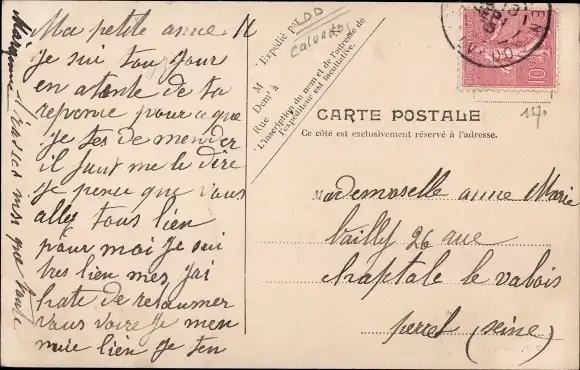 Ma petite anne
je sui tou jour
en atente de ta
reponse pour ce que
je tes de mender
il faut me le dire
je pence que vous
ally tous lien
pour moi je sui
tres lien mes j'ai
hate de retourner
vous voire je men
nuie lien je ten
M
Expédié par
LDD
Calvados
Dem^t à
Rue
L'inscription du nom et de l'adresse de
l'expéditeur est facultative.
10
1570
CARTE POSTALE
Ce côté est exclusivement réservé à l'adresse.
Mademoselle anne Marie
bailly 26 rue
chaptale le valois
perret (seine)